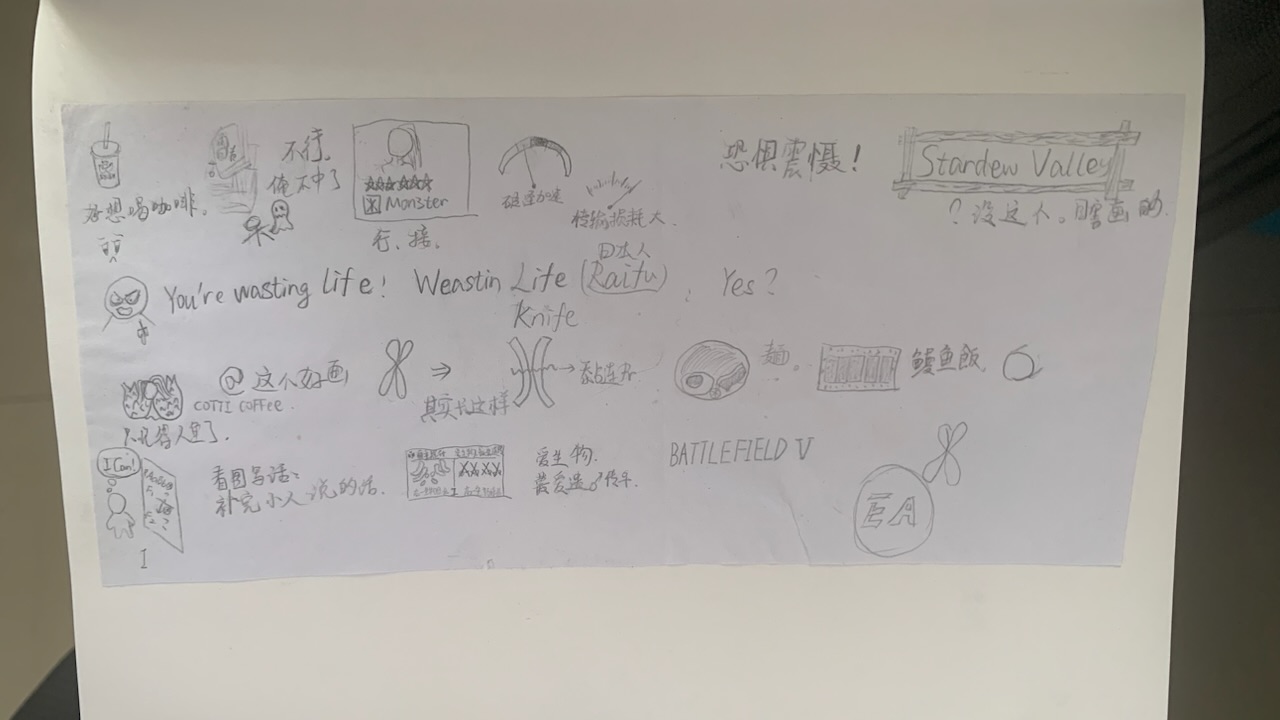 想喝咖啡。
不行。
俺不中了
Monster
行、接。
传输损耗大.
恐惧震慑!
Stardew Valley
?没这个。瞎画的.
You're wasting life! Weastin Life (Raifu) Yes?
日本人
Knife
@ 这个好画
COTTI COFFEE
其实长这样
→ 粘连
麺。
鳗鱼飯
I Can!
看图写话:
补充小人说的话.
爱生物.
最爱遗传斗.
BATTLEFIELD V
EA
I